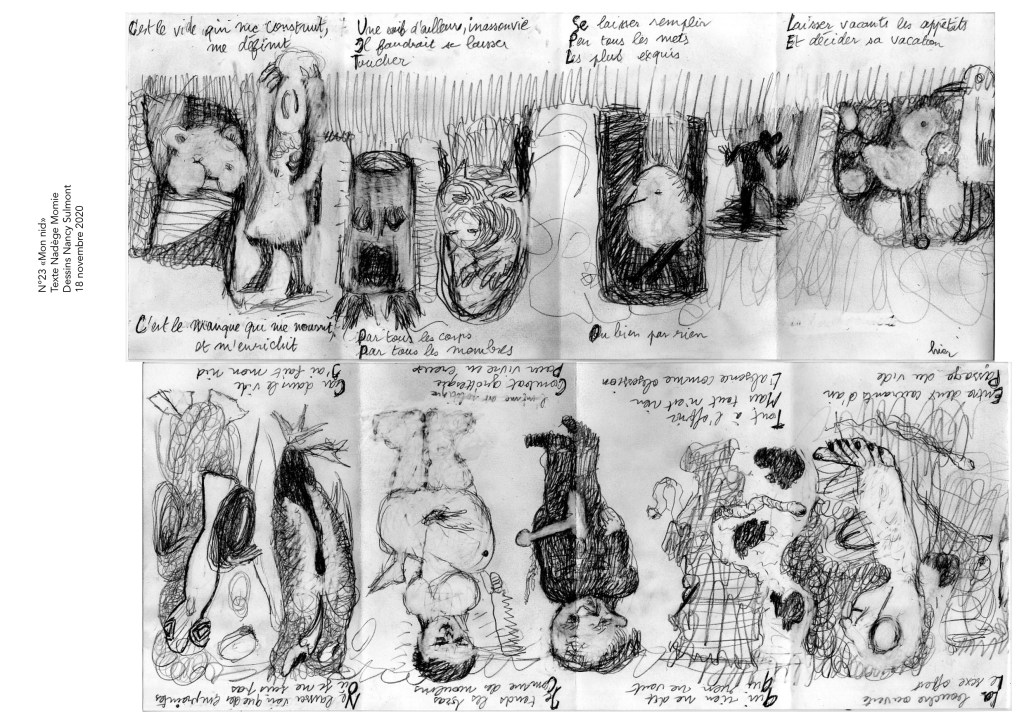 N°23 «Mon nid»
Texte Nadège Momie
Dessins Nancy Sulmont
18 novembre 2020
C'est le vide qui me construit,
me définit
Une soif d'ailleurs, inassouvie
Il faudrait se laisser
Toucher
Se laisser remplir
Par tous les mets
Les plus exquis
Laisser vacants les appétits
Et décider sa vacation
C'est le manque qui me nourrit
et m'enrichit
Par tous les corps
Par tous les
Ou bien par rien
hier
La bouche ouverte
Le sexe offert
Qui rien ne dit
Qui rien ne vaut
Je tends les bras
Comme des moulins
Ne laisser voir que des empreintes
Où je ne suis pas
Entre deux courants d'air
Passage du vide
Tout à l'offrir
Mais tout n'est rien
L'absence comme obsession
Combat grotesque
vivre en creux
Car dans le vide
J'ai fait mon nid